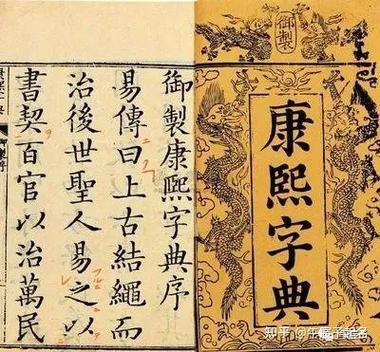 御製
康熙字典
御製康熙字典序
易傳曰上古結繩而
治後世聖人易之以
書契百官以治萬民
知乎